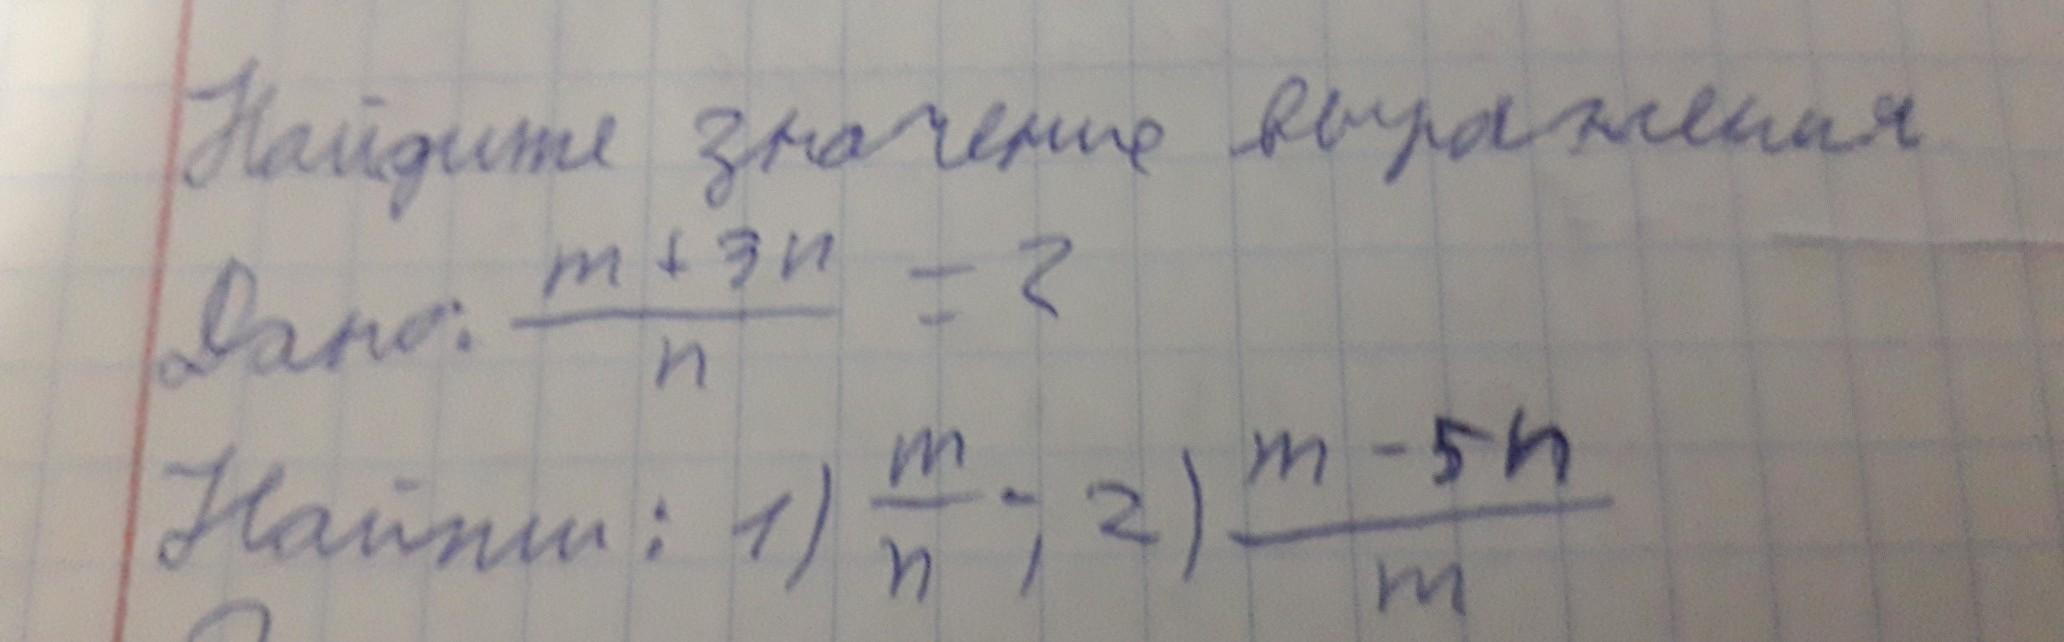 Найдите значение выражения
Дано: (m + 3n)/n = 2
Найти: 1) m/n; 2) (m - 5n)/m